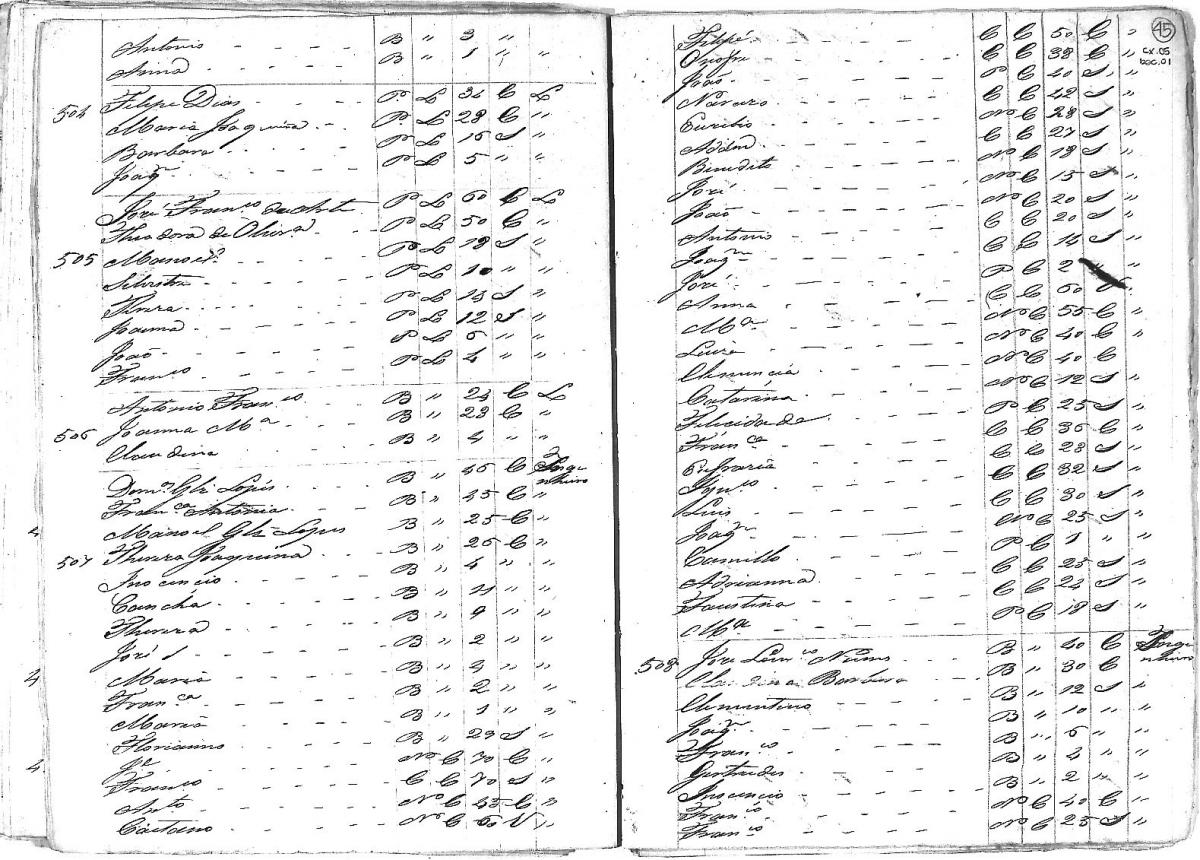 Antonio B " 3 "
Anna B " 1 " "
504 Filipe Dias P L 34 C L
Maria Joaquina P L 28 C "
Barbara P L 15 S "
Joaqm P L 5 " "
José Franco da P L 60 C L
Theodora de Olivra P L 50 C "
505 Manoel P L 18 S "
Silvestre P L 10 " "
Thereza P L 13 S "
Joanna P L 12 S "
João P L 6 " "
Franco P L 4 " "
Antonio Franco B " 23 C L
506 Joanna Ma B " 22 C "
Claudina B " 4 " "
Domos Glz Lopes B " 46 C
Franca Antonia B " 45 C "
4 Manoel Glz Lopes B " 25 C "
507 Thereza Joaquina B " 26 C "
Inocencio B " 4 " "
B " 11 " "
Thereza B " 9 " "
José B " 2 " "
4 Maria B " 3 " "
Franca B " 2 " "
Maria B " 1 " "
Florianno B " 29 S "
4 Je No C 70 C "
Franco C C 70 S "
Anto No C 45 C "
Caetano No C 60 V "
45
cx.05
doc.01
Filipé C C 50 C "
Onofre C C 38 C "
João P C 40 S "
Nazario C C 42 S "
Euzebio No C 28 S "
Addm C C 27 S "
Benedito No C 18 S "
José No C 15 S "
João No C 20 S "
Antonio C C 20 S "
Joaqm C C 14 S "
José P C 2 "
Anna C C 60
Ma No C 55 C "
Luiza No C 40 C "
Clemencia No C 40 C
Catarina No C 12 S "
Felicidade P C 25 S "
Franca C C 36 C "
Eufrazia C C 28 S "
Ignco C C 32 S "
Luis C C 30 S "
Joaqm No C 25 S "
Camillo P C 1 " "
Adrianna C C 25 S "
Faustina C C 24 S "
Ma P C 18 S "
508 José Nunes B " 40 C
Claudina Barbara B " 30 C
Clementino B " 12 S "
Joaqm B " 10 " "
Franco B " 6 " "
Gertrudes B " 4 " "
Inocencio B " 2 " "
Franco No C 40 C "
Franco No C 25 S "